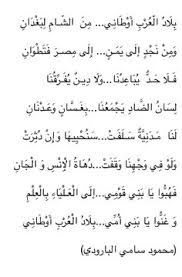 بِلَادُ الْعُرْبِ أَوْطَانِي... مِنَ الشَّامِ لِبَغْدَانِ
وَمِنْ نَجْدٍ إِلَى يَمَنٍ... إِلَى مِصْرَ فَتَطْوَانِ
فَلَا حَدٌّ يُبَاعِدُنَا...وَلَا دِينٌ يُفَرِّقُنَا
لِسَانُ الضَّادِ يَجْمَعُنَا...بِغَسَّانٍ وَعَدْنَانِ
لَنَا مَدَنِيَّةٌ سَلَفَتْ...سَنُحْيِيهَا وَإِنْ دُثِرَتْ
وَلَوْ فِي وَجْهِنَا وَقَفَتْ...دُهَاةُ الْإِنْسِ وَ الْجَانِ
فَهُبُّوا يَا بَنِي قَوْمِي...إِلَى الْعَلْيَاءِ بِالْعِلْمِ
وَ غَنُّوا يَا بَنِي أُمِّي...بِلَادُ الْعُرْبِ أَوْطَانِي
(محمود سامي البارودي)